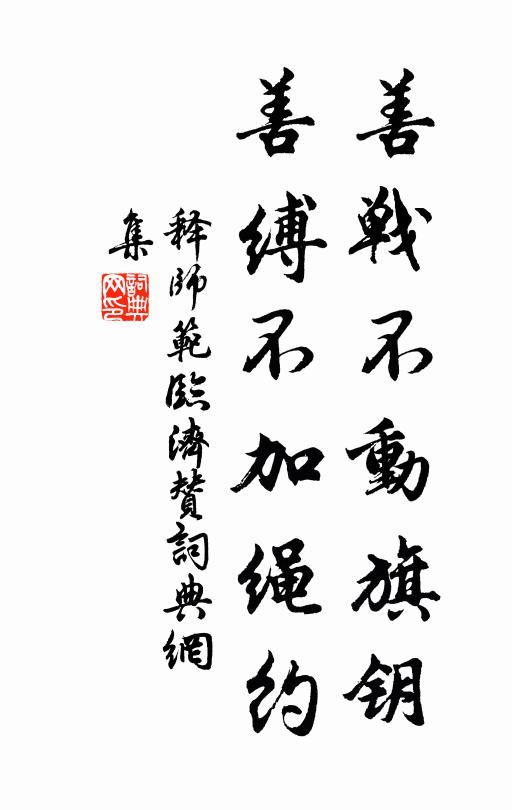 善戦不動旗钥
善缚不加绳约
释師範臨濟贊詞典網
集
詞典
网印